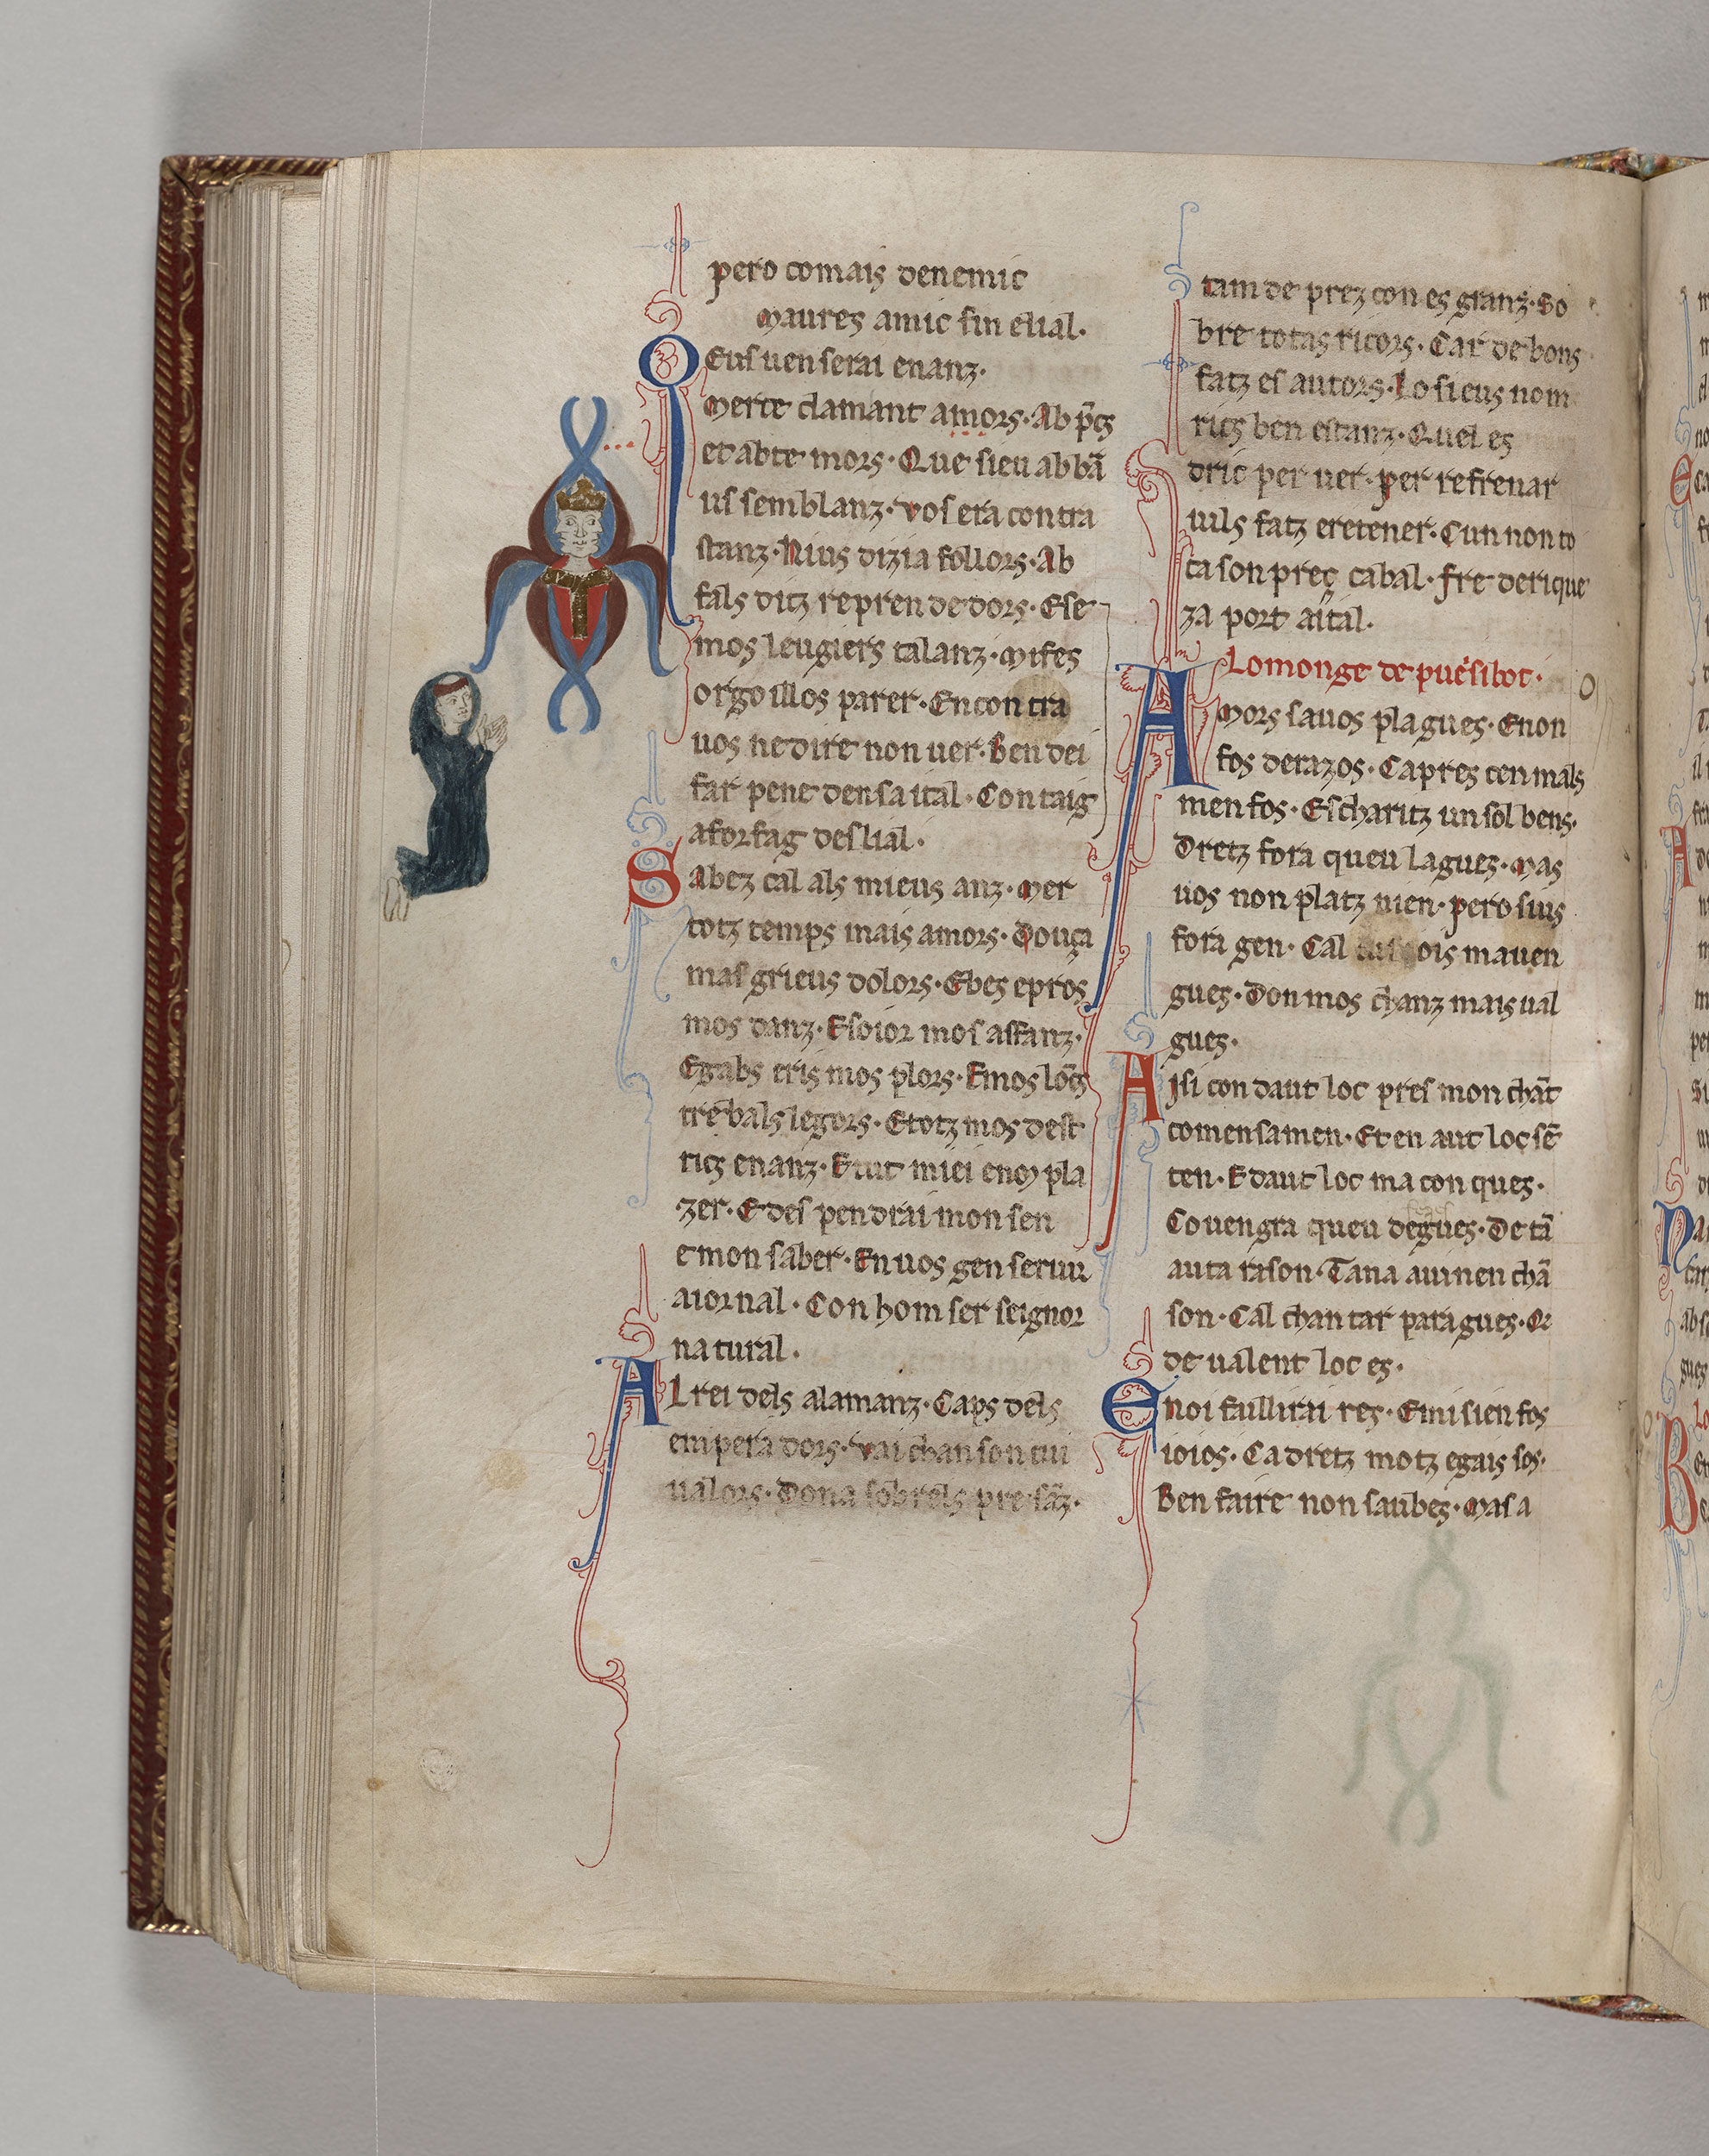 pero comais denemic
maures amic fin elial.
Eus uen serai enanz.
Merce clamant amors. Ab p̃cs
et ab te mors. Que sieu ab bā
us semblanz. vos era contra
stanz. Nius dizia follors. Ab
fals ditz reprendedors. E se
mos leugiers talanz. Mi fes
orgoillos parer. Encontra
uos ne dire non uer. Ben dei
far penedensa ital. Con taig
a forfag deslial.
Sabez cal als mieus anz. Mer
totz temps mais amors. Douça
mas grieus dolors. E bes e pros
mos danz. E soior mos affanz.
E gabs e ris mos plors. E mos lōcs
trebals legors. E totz mos dest
rics enanz. E tut miei enoy pla
zer. E despendrai mon sen
e mon saber. En uos gen seruir
aiornal. Con hom ser seignor
natural.
Al rei dels alamanz. Caps dels
emperadors. vai chanson cui
ualors. Dona sobrels presāz.
tam de prez con es granz. So
bre totas ricors. Car de bons
fatz es autors. Lo sieus nom
rics ben estanz. Quel es
dric per uer. per refrenar
uils fatz e retener. Cun non to
ta son preç cabal. fre de rique
za port aital.
Lo monge de puesibot.
Amors sa uos plagues. E non
fos derazos. Capres cen mals
men fos. Escharitz un sol bens.
Dretz fora queu lagues. Mas
uos non platz nien. pero sius
fora gen. Cal ois mauen
gues. Don mos chanz mais ual
gues.
Aisi con daut loc pres mon chāt
comensamen. Et en aut loc sē
ten. E daut loc ma conques.
Couengra queu degues. De tā
auta rason. Tan auinen chā
son. Cal chantar paragues. Qe
de ualent loc es.
E noi faillirai res. E mi sien fos
ioios. Ca dretz motz e gais sos.
Ben faire non saubes. Mas a